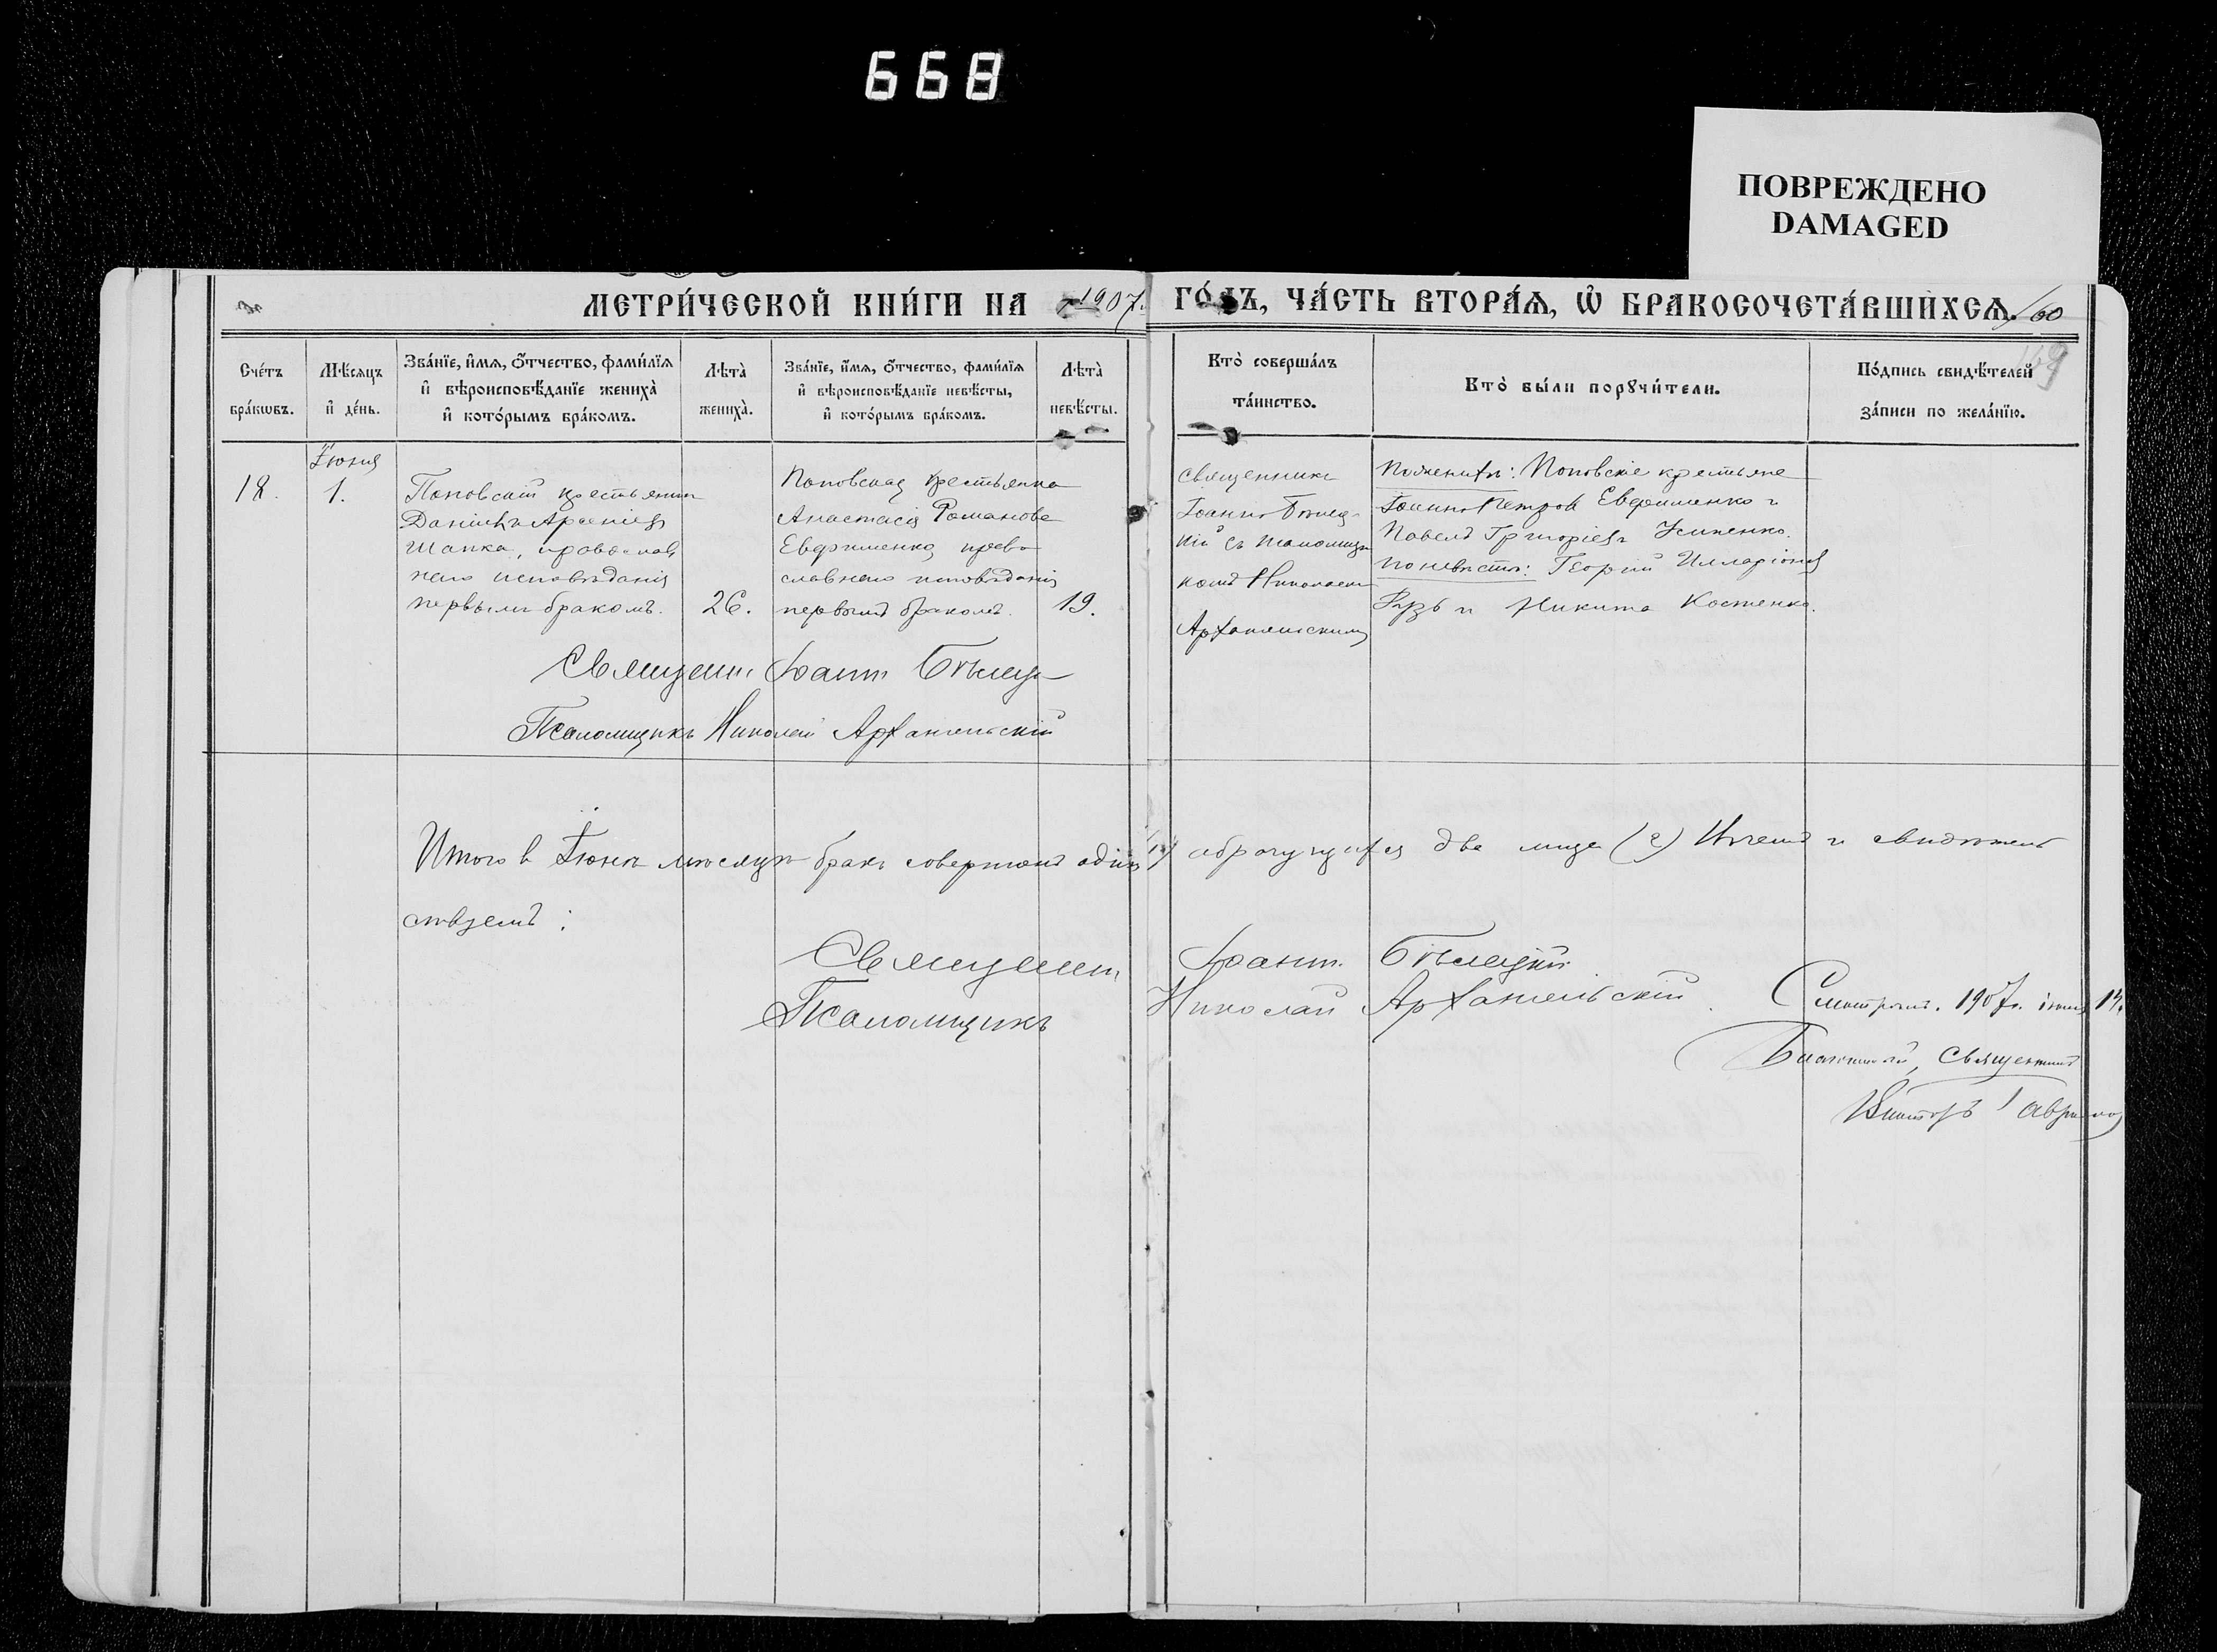 668
ПОВРЕЖДЕНО
DAMAGED
МЕТРИ́ЧЕСКОЙ КНИ́ГИ НА 1907 ГО́ДЪ, ЧА́СТЬ ВТОРА́Я, Ѡ БРАКОСОЧЕТА́ВШИХСЯ.
160
Сче́тъ бра́кѡвъ.
Мѣ́сяцъ и де́нь.
Зва́нїе, и́мя, ѻ́тчество, фами́лїя и вѣроисповѣ́данїе жениха̀ и кото́рымъ бра́комъ.
Лѣта̀ жениха̀.
Зва́нїе, и́мя, ѻ́тчество, фами́лїя и вѣроисповѣ́данїе невѣ́сты, и кото́рымъ бра́комъ.
Лѣта̀ невѣ́сты.
Кто̀ соверша́лъ та́инство.
Кто̀ бы́ли порꙋчи́тели.
По́дпись свидѣ́телей за́писи по жела́нїю.
18.
Іюня
1.
Поповскій крестьянинъ
Даніилъ Арсеніевъ
Шапка, православ
наго исповѣданія
первымъ бракомъ.
26.
Поповская крестьянка
Анастасія Романова
Евфименко, право
славнаго исповѣданія
первымъ бракомъ.
19.
Священникъ
Іоаннъ Бѣлец
кій съ псаломщи
комъ Николаемъ
Архангельскимъ
По женихѣ: Поповскіе крестьяне
Іоаннъ Петровъ Евфименко и
Павелъ Григоріевъ Усипенко.
по невѣстѣ: Георгій Илларіоновъ
Гузь и Никита Костенко.
Священникъ Іоаннъ Бѣлецкій
Псаломщикъ Николай Архангельскій
Итого въ Іюнѣ мѣсяцѣ бракъ совершенъ одинъ (1) обрачущихся два лица (2) Итемъ и свидѣтель
ствуемъ:
Священникъ Іоаннъ Бѣлецкій
Псаломщикъ Николай Архангельскій
Смотрѣлъ. 1907 г. іюня 14.
Благочинный, Священникъ
Викторъ Гавриловъ